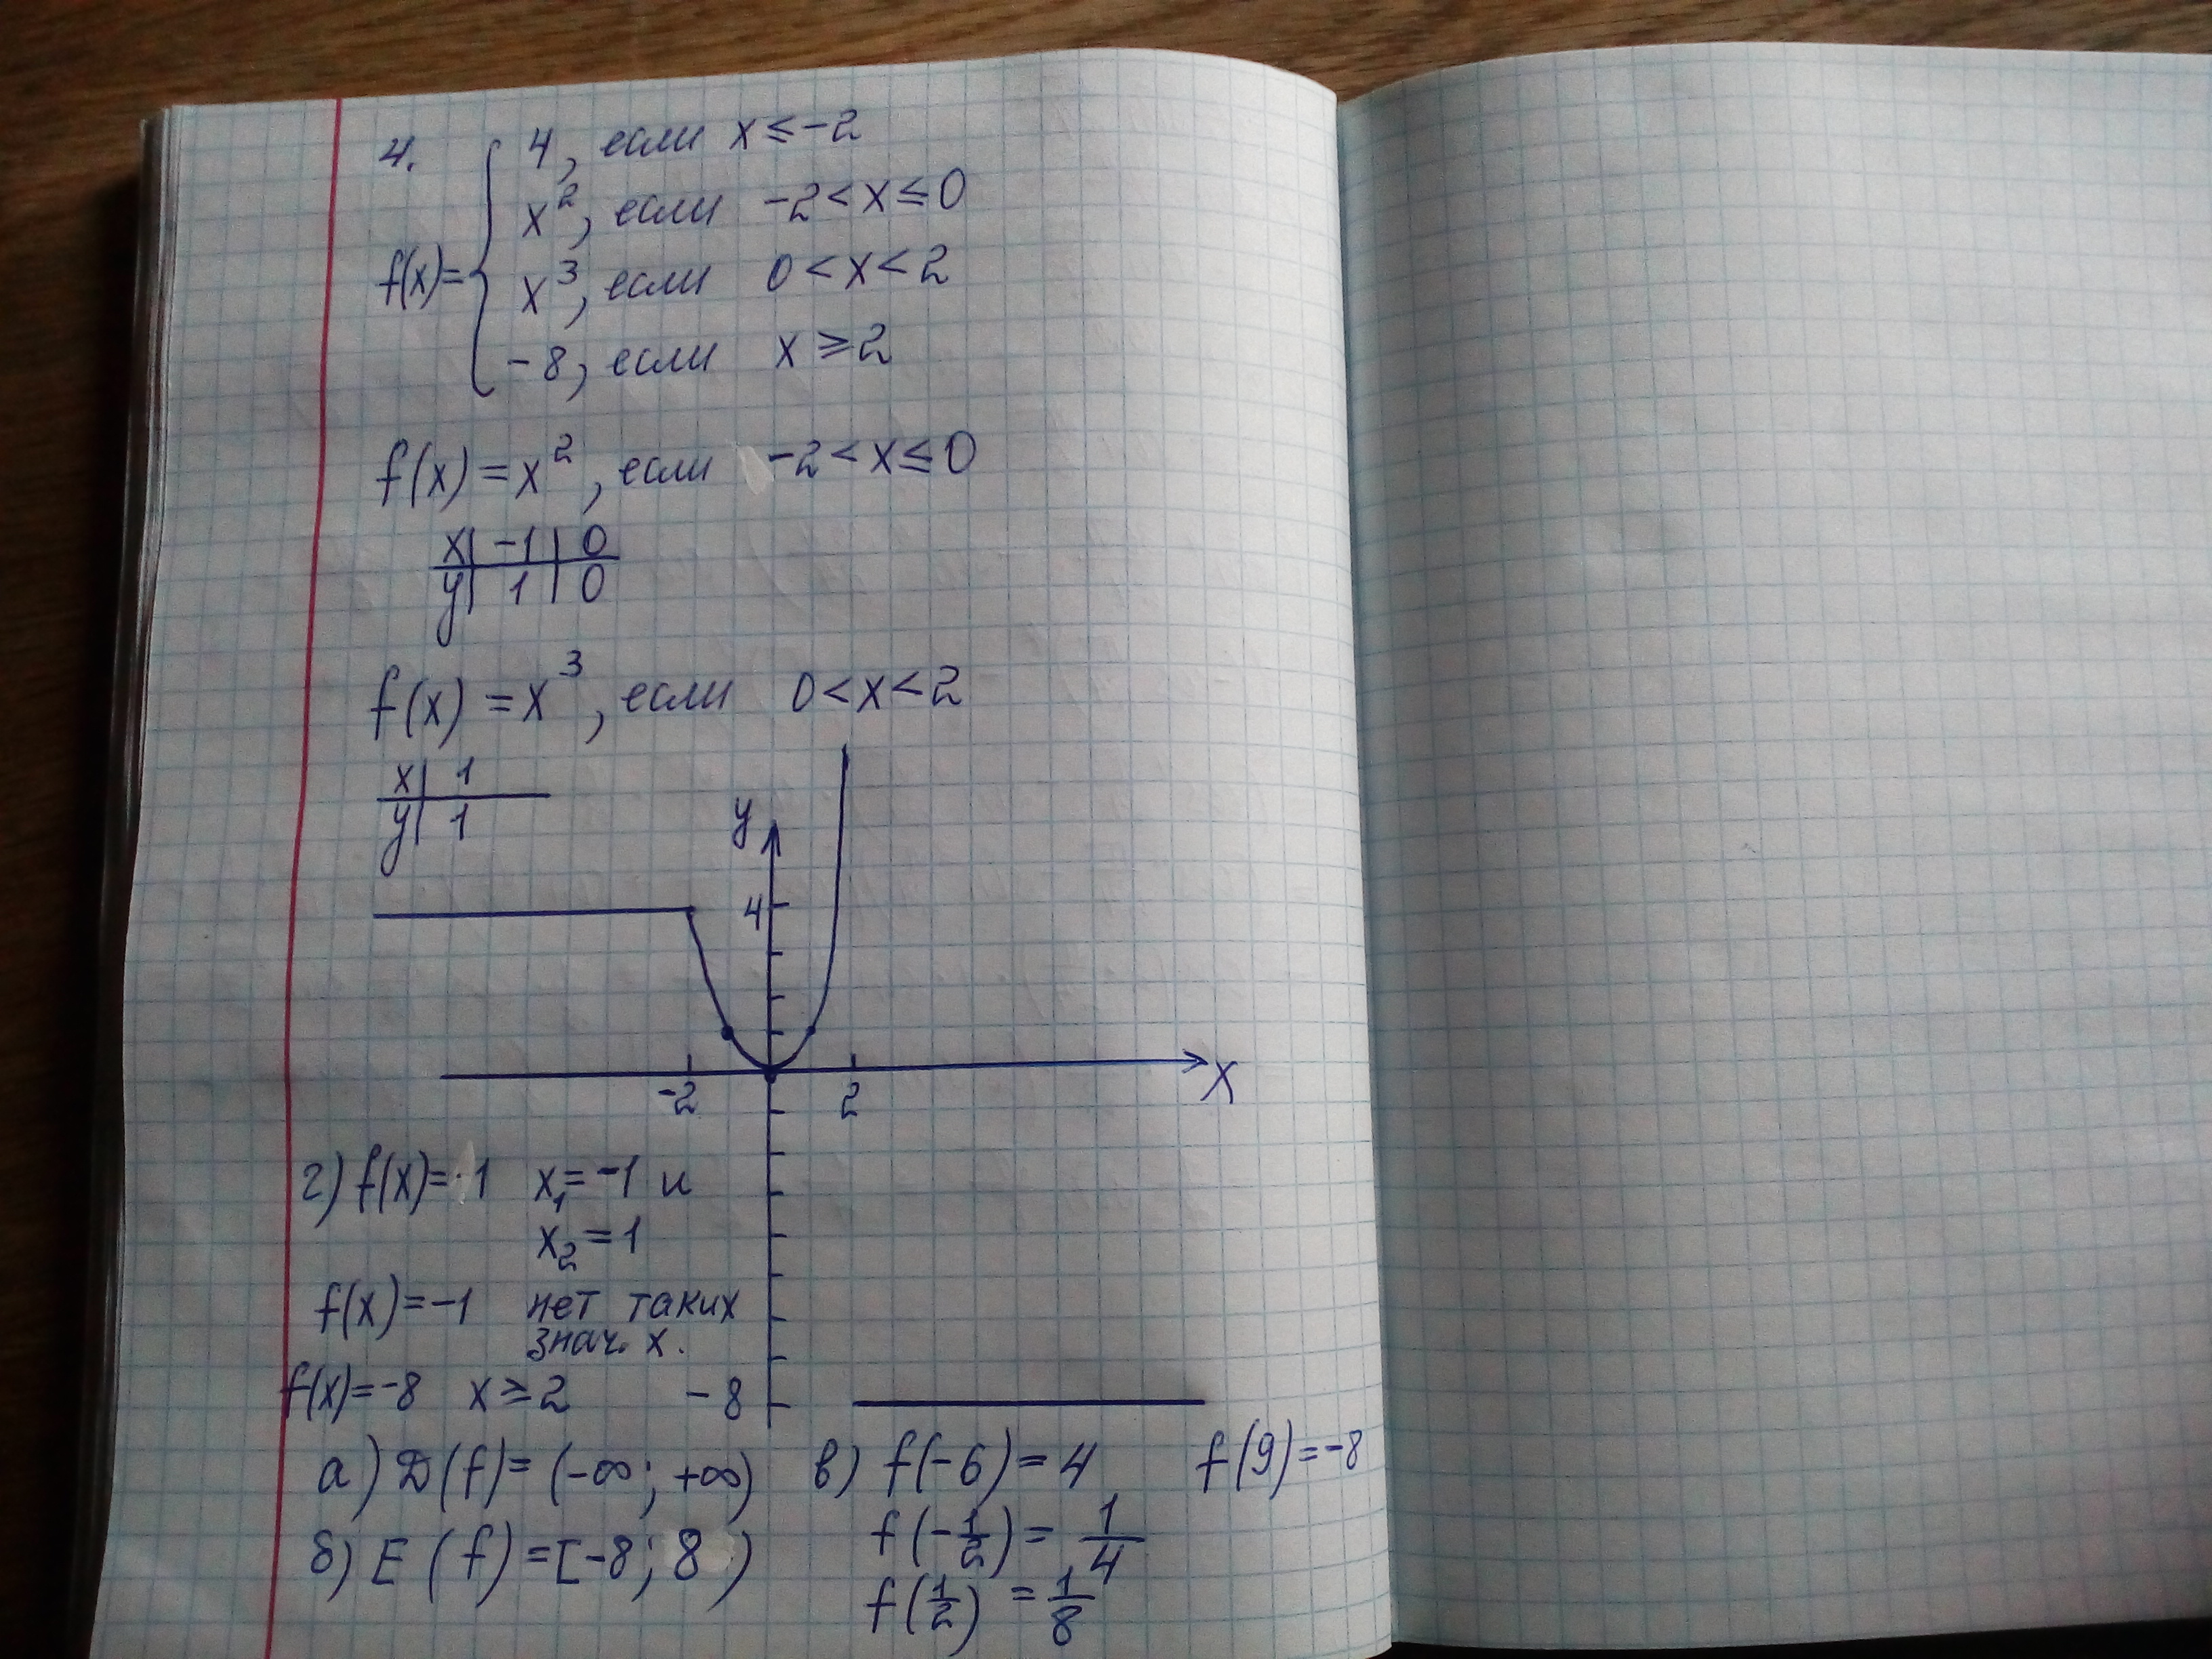 4.
4, если x ≤ -2
x², если -2 < x ≤ 0
f(x)=
x³, если 0 < x < 2
-8, если x ≥ 2
f(x) = x², если -2 < x ≤ 0
x | -1 | 0
y | 1 | 0
f(x) = x³, если 0 < x < 2
x | 1
y | 1
y
4
-2 2 X
г) f(x)= 1 x₁= -1 и
x₂ = 1
f(x) = -1 нет таких
знач. x.
f(x)= -8 x ≥ 2 -8
а) D(f)= (-∞; +∞) в) f(-6) = 4 f(9) = -8
f(-1/2) = 1/4
б) E(f) = [-8; 8)
f(1/2) = 1/8